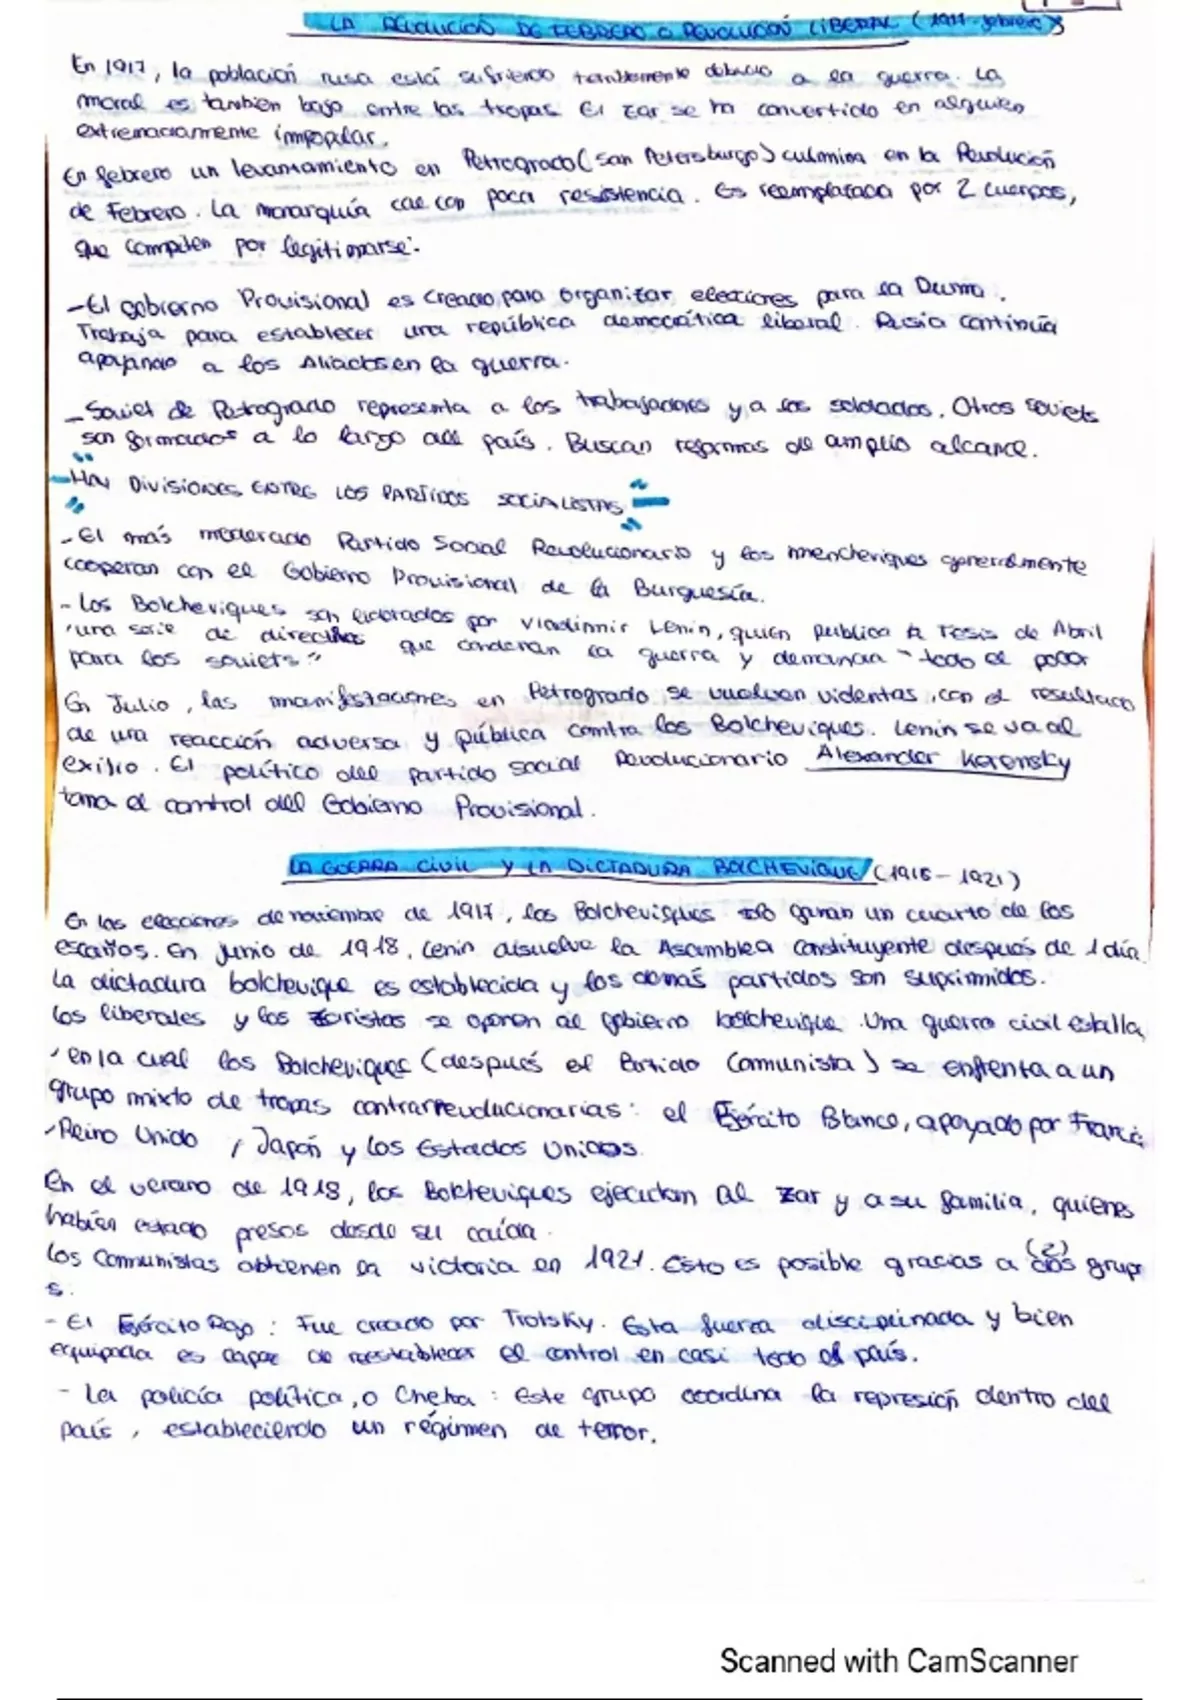 LA REVOLUCIÓN DE FEBRERO O REVOLUCIÓN LIBERAL (1917-febrero)
En 1917, la población rusa está sufriendo terriblemente debido a la guerra. La
moral es tambien baja entre las tropas. El zar se ha convertido en alguien
extremadamente impopular.
En febrero un levantamiento en Petrogrado (San Petersburgo) culmina en la Revolución
de Febrero. La monarquía cae con poca resistencia. Es reemplazada por 2 cuerpos,
que compiten por legitimarse:
-El gobierno Provisional es creado para organizar elecciones para la Duma.
Trabaja para establecer una república democrática liberal. Rusia continúa
apoyando a los Aliados en la guerra.
-Soviet de Petrogrado representa a los trabajadores y a los soldados. Otros soviets
son formados a lo largo del país. Buscan reformas de amplio alcance.
-HAY DIVISIONES ENTRE LOS PARTIDOS SOCIALISTAS-
-El más moderado Partido Social Revolucionario y los mencheviques generalmente
cooperan con el Gobierno Provisional de la Burguesía.
-Los Bolcheviques son liderados por Vladimir Lenin, quien publica la Tesis de Abril
"una serie de directrices que condenan la guerra y demandan "todo el poder
para los soviets"
En Julio, las manifestaciones en Petrogrado se vuelven violentas, con el resultado
de una reacción adversa y pública contra los Bolcheviques. Lenin se va al
exilio. El político del partido social Revolucionario Alexander Kerensky
toma el control del Gobierno Provisional.
LA GUERRA CIVIL Y LA DICTADURA BOLCHEVIQUE (1918-1921)
En las elecciones de noviembre de 1917, los Bolcheviques solo ganan un cuarto de los
escaños. En junio de 1918, Lenin disuelve la Asamblea Constituyente después de 1 día.
La dictadura bolchevique es establecida y los demás partidos son suprimidos.
Los liberales y los zaristas se oponen al gobierno bolchevique. Una guerra civil estalla,
en la cual los Bolcheviques (después el Partido Comunista) se enfrenta a un
grupo mixto de tropas contrarrevolucionarias: el Ejército Blanco, apoyado por Francia
Reino Unido, Japón y los Estados Unidos.
En el verano de 1918, los Bolcheviques ejecutan al zar y a su familia, quienes
habían estado presos desde su caída.
Los Comunistas obtienen la victoria en 1921. Esto es posible gracias a dos (2) grupo
s.
- El Ejército Rojo: Fue creado por Trotsky. Esta fuerza disciplinada y bien
equipada es capaz de reestablecer el control en casi todo el país.
- La policía política, o Cheka: Este grupo coordina la represión dentro del
país, estableciendo un régimen de terror.
Scanned with CamScanner